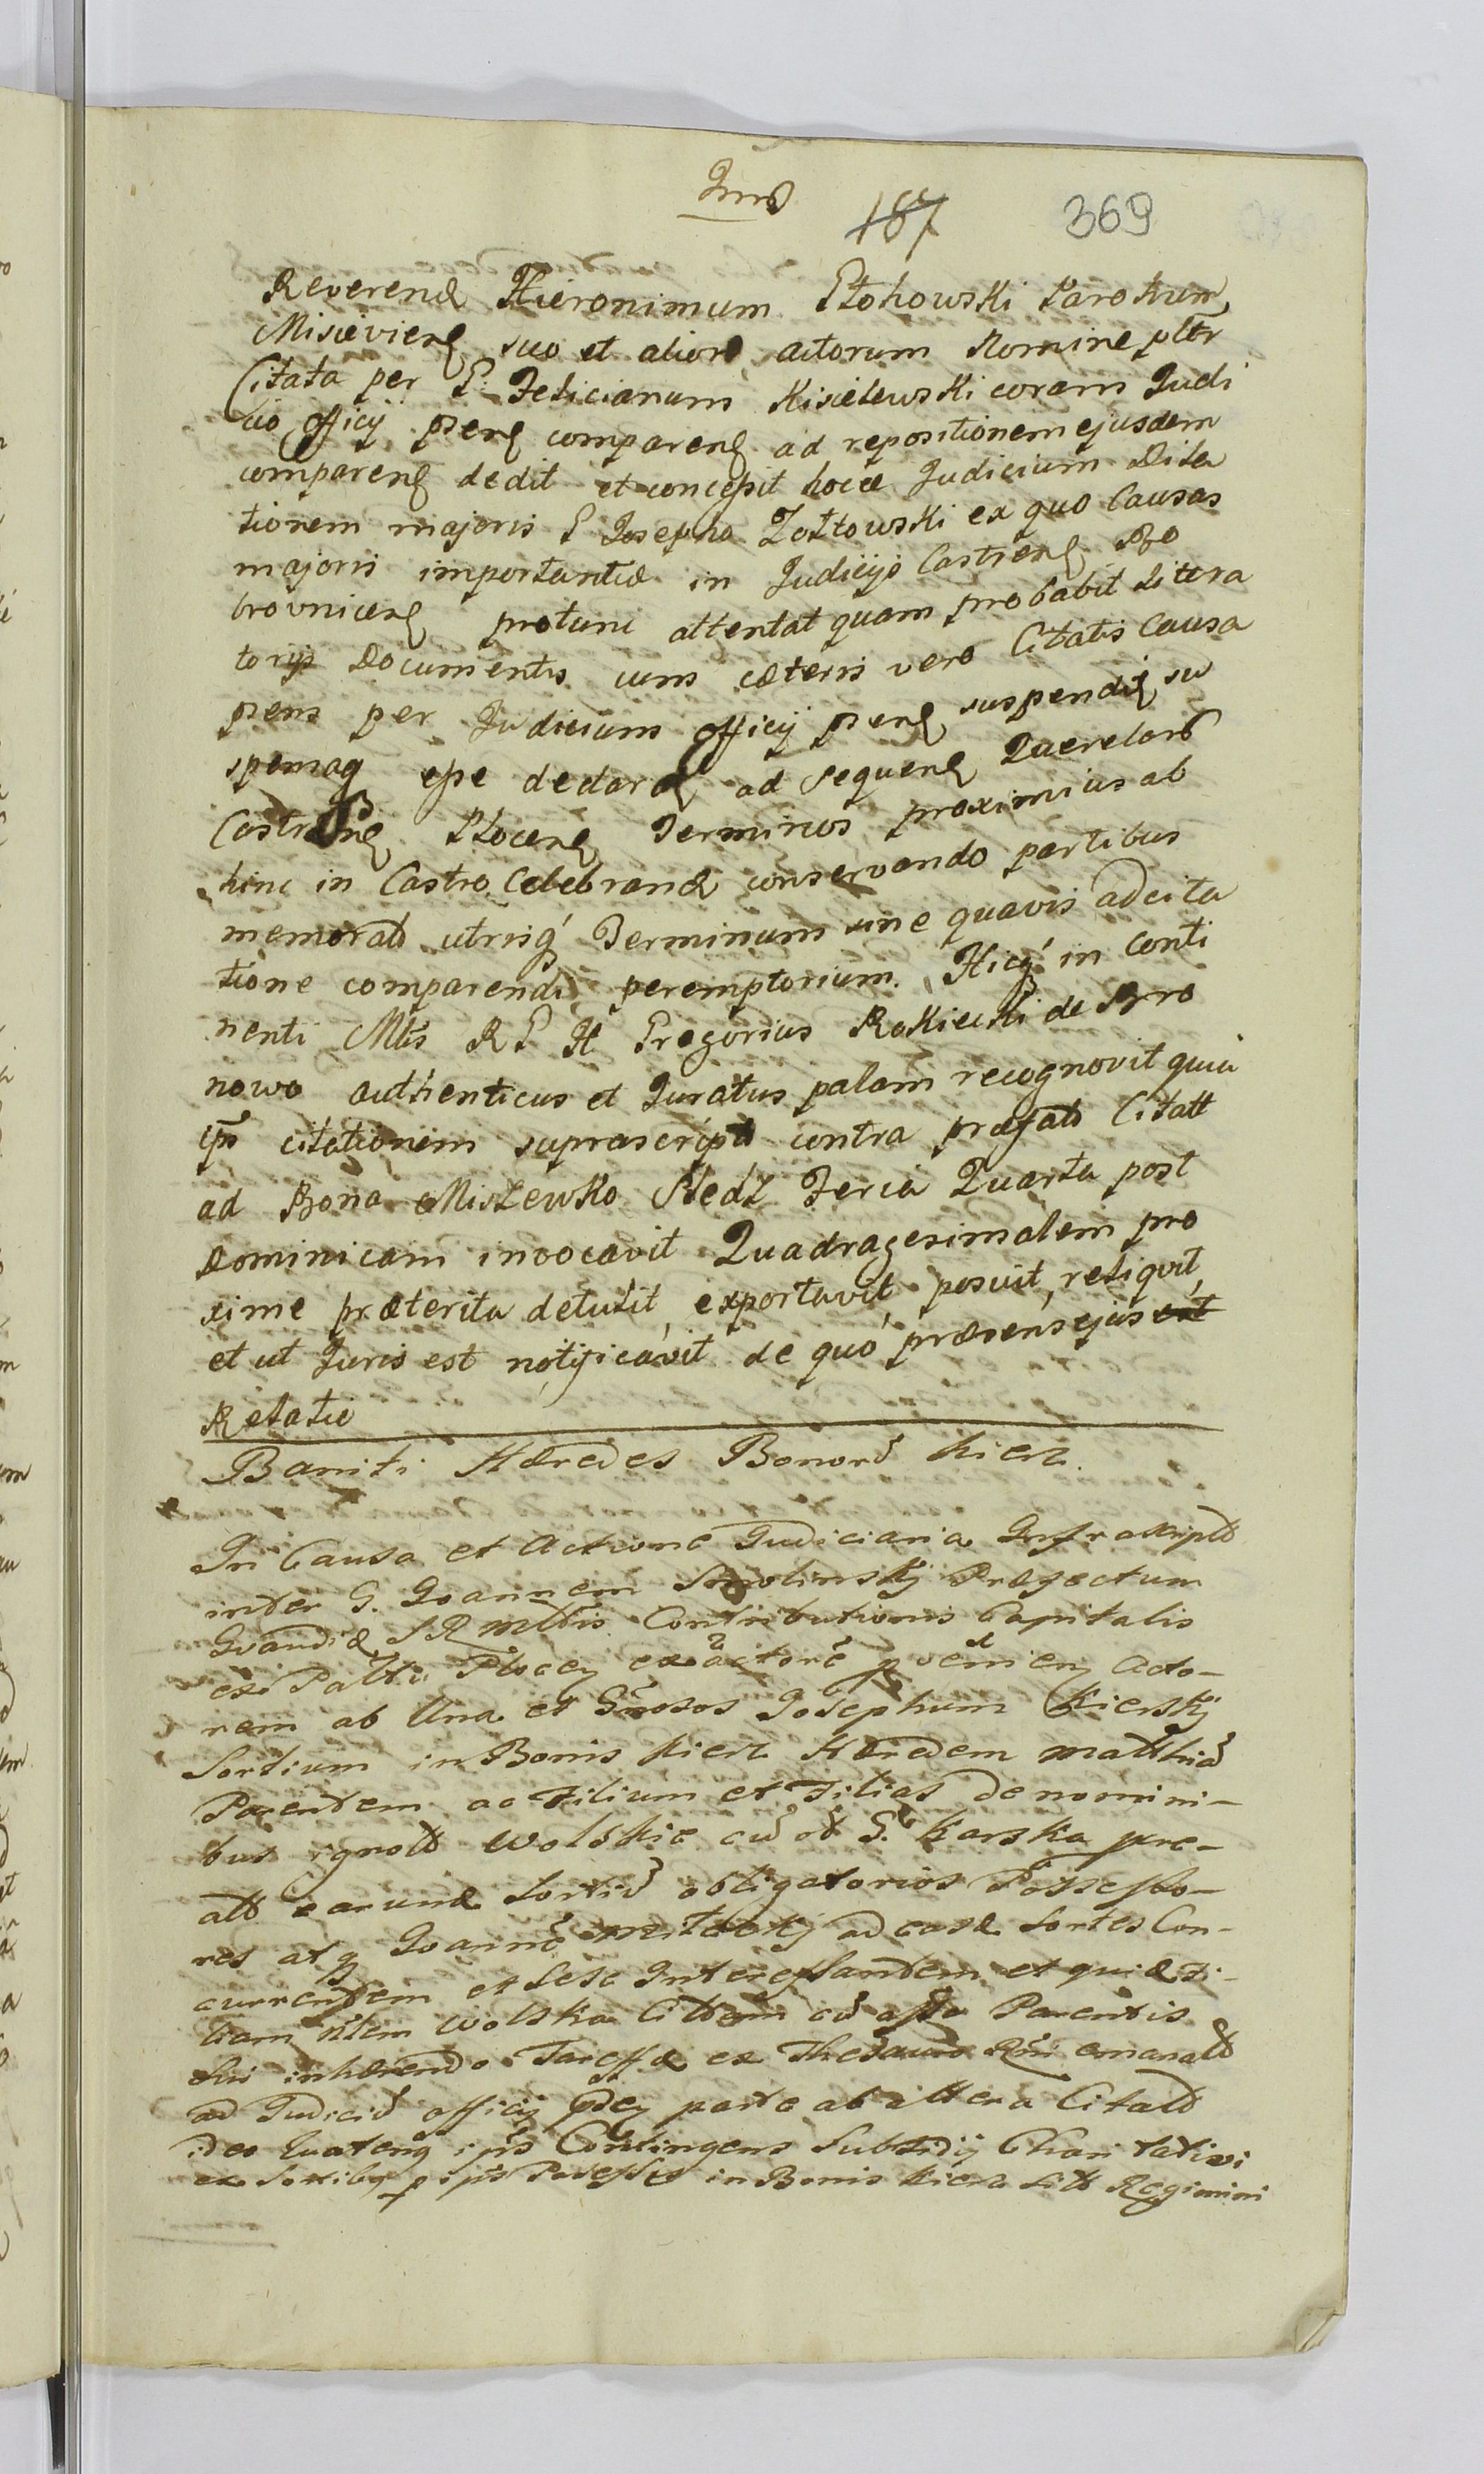 187 369
Reverend Hieronimum Płohowski Parochum
Misieviens suo et aliorū actorum Nomine pltr
Citata per G. Felicianum Kisielewski coram Judi
cio officij psens comparens ad repositionem ejusdem
comparens dedit et concessit hocce Judicium Dila
tionem majoris G Josepho Zołtowski ex quo Causas
majoris importantiæ in Judicijs Castrens Bo
brovnicens protunc attentat quam probabit Litera
torijs Documentis cum cæteris vero Citatis Causa
psens per Judicium officij psens suspendit, su
spensaq esse declarat ad sequens Querelarū
Castrens Plocens Terminos proximius ab
hinc in Castro Celebrand conservando partibus
memoratis utrisq Terminum sine quavis adcita
tione comparendi peremptorium. Hicq in Conti
nenti Mtis R G H Gregorius Rokicki de Bro
nowo authenticus et Juratus palam recognovit quia
ipse citationem suprascriptā contra præfatos Citatt
ad Bona Miszewko Stedz Feria Quarta post
Dominicam invocavit Quadragesimalem pro
xime præterita detulit, exportavit, posuit, reliqvit,
et ut Juris est notificavit de quo præsens ejus est
Relatio
Baniti Hæredes Bonorū Kierz
In Causa et Actione Judiciaria Infrascripta
inter G. Joannem Smolinskij Præfectum
Gvardiæ S R Mttis Contributionis Capitalis
ex Palttu Plocen exactorē provenien Acto-
rem ab Una et Gnosos Josephum Kierskij
Sortium in Bonis Kierz Hæredem Matthiā
Parentem ac Filium et Filias de nomini-
bus ignotos Wolskie cū G. Karska pre-
atts earund Sortiū obligatorios Possesso-
res atq Joannē ad easd Sortes Con-
currentem et Sese Interessantem et quidē Fi-
liam item Wolska Cittam cū assa Parentis
sui inhærendo Tareffæ ex Thesauro Rni emanatæ
ad Judiciū officij pdcy parte ab altera Citatos
ideo Quatenq ipsi Contingens Subsidij Charitativi
ex Sortibq p ipsos Possessis in Bonis Kierz sitt Regimini